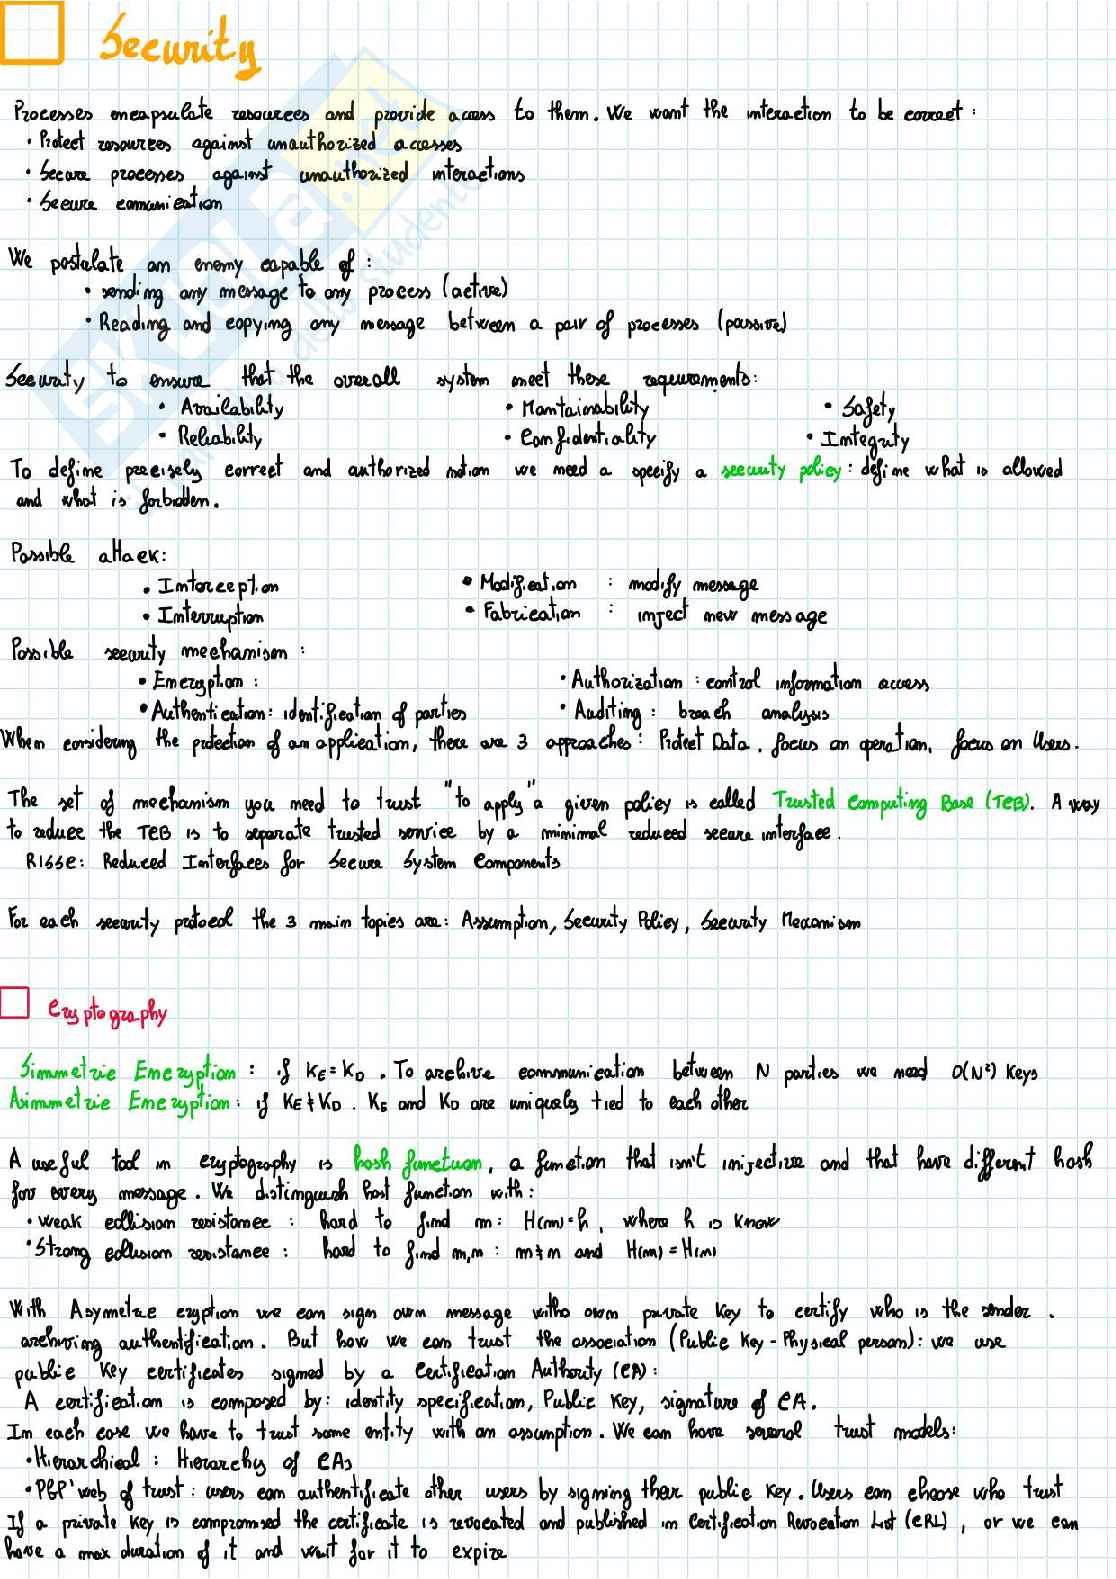 Security
Processes encapsulate resources and provide access to them. We want the interaction to be correct:
• Protect resources against unauthorized accesses
• Secure processes against unauthorized interactions
• Secure comunication
We postulate an enemy capable of:
• sending any message to any process (active)
• Reading and copying any message between a pair of processes (passive)
Security to ensure that the overall system meet these requirements:
• Availability • Mantainability • Safety
• Reliability • Confidentiality • Integrity
To define precisely correct and authorized notion we need a specify a security policy: define what is allowed
and what is forbidden.
Possible attack:
• Interception • Modification : modify message
• Interruption • Fabrication : inject new message
Possible security mechanism:
• Encryption: • Authorization: control information access
• Authentication: identification of parties • Auditing: breach analysis
When considering the protection of an application, there are 3 approaches: Protect Data, focus on operation, focus on Users.
The set of mechanism you need to trust "to apply" a given policy is called Trusted Computing Base (TCB). A way
to reduce the TCB is to separate trusted service by a minimal reduced secure interface.
RISSC: Reduced Interfaces for Secure System Components
For each security protocol the 3 main topics are: Assumption, Security Policy, Security Mecanism
Cryptography
Simmetric Encryption: if KE = KD. To archive communication between N parties we need O(N²) Keys
Asimmetric Encryption: if KE ≠ KD. KE and KD are uniquely tied to each other
A useful tool in cryptography is hash function, a function that isn't injective and that have different hash
for every message. We distinguish hash function with:
• weak collision resistance: hard to find m: H(m)=h, where h is know
• Strong collision resistance: hard to find m,n: m≠n and H(m)=H(n)
With Asymetric cryption we can sign own message with own private key to certify who is the sender.
archiving authentification. But how we can trust the association (Public Key - Physical person): we use
public key certificates signed by a Certification Authority (CA):
A certification is composed by: identity specification, Public Key, signature of CA.
In each case we have to trust some entity with an assumption. We can have several trust models:
• Hierarchical: Hierarchy of CAs
• PGP' web of trust: users can authentificate other users by signing their public key. Users can choose who trust
If a private key is compromised the certificate is revocated and published in Certification Revocation List (CRL), or we can
have a max duration of it and wait for it to expire